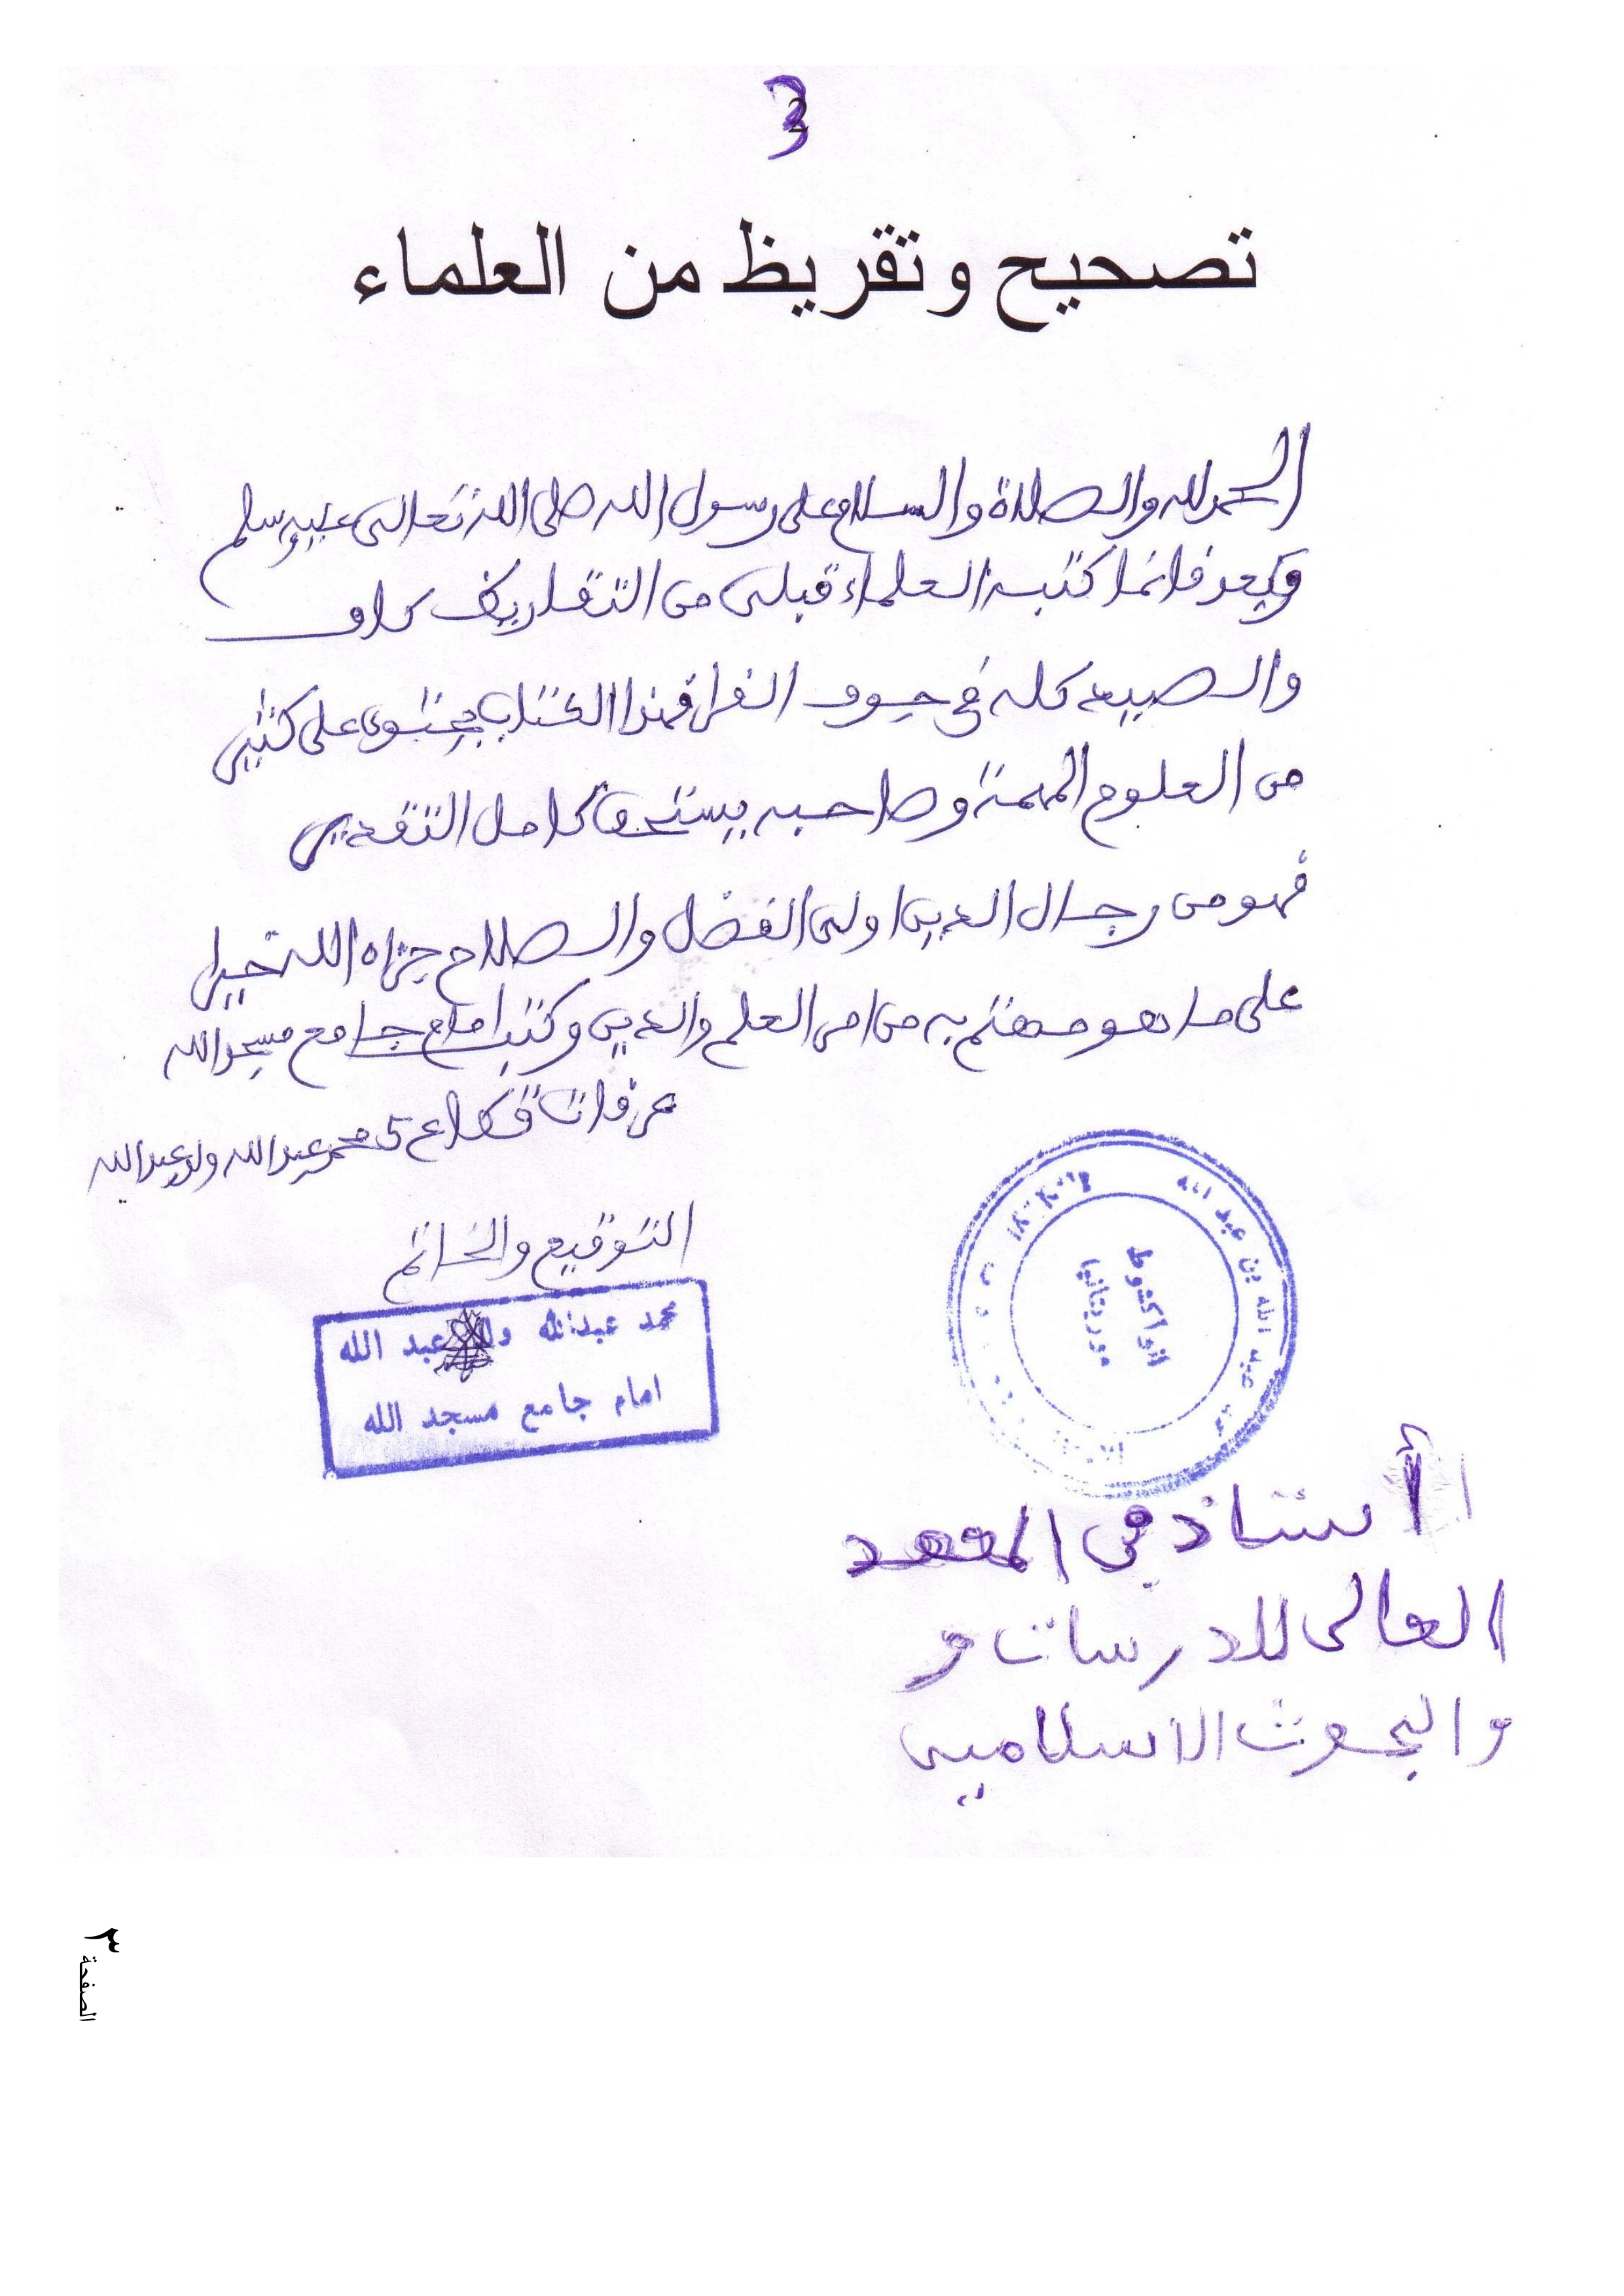 3
تصحيح وتقريظ من العلماء
الحمد لله والصلاة والسلام على رسول الله صلى الله تعالى عليه وسلم
وبعد فانما كتبه العلماء قبلى من التقاريظ كاف
والصيد كله في جوف الفرا فهذا الكتاب يحتوى على كثير
من العلوم المهمة وصاحبه يستحق كامل التقدير
فهو من رجال الدين اولى الفضل والصلاح جزاه الله خيرا
على ما هو مهتم به من امر العلم والدين وكتب امام جامع مسجد الله
عرفات قطاع 5 محمد عبد الله ولد عبد الله
التوقيع والخاتم
محمد عبد الله ولد عبد الله
امام جامع مسجد الله
عبد الله بن
انواكشوط
موريتانيا
أستاذ في المعهد
العالى للدرسات و
والبحوث الاسلامية
الصفحة ٣